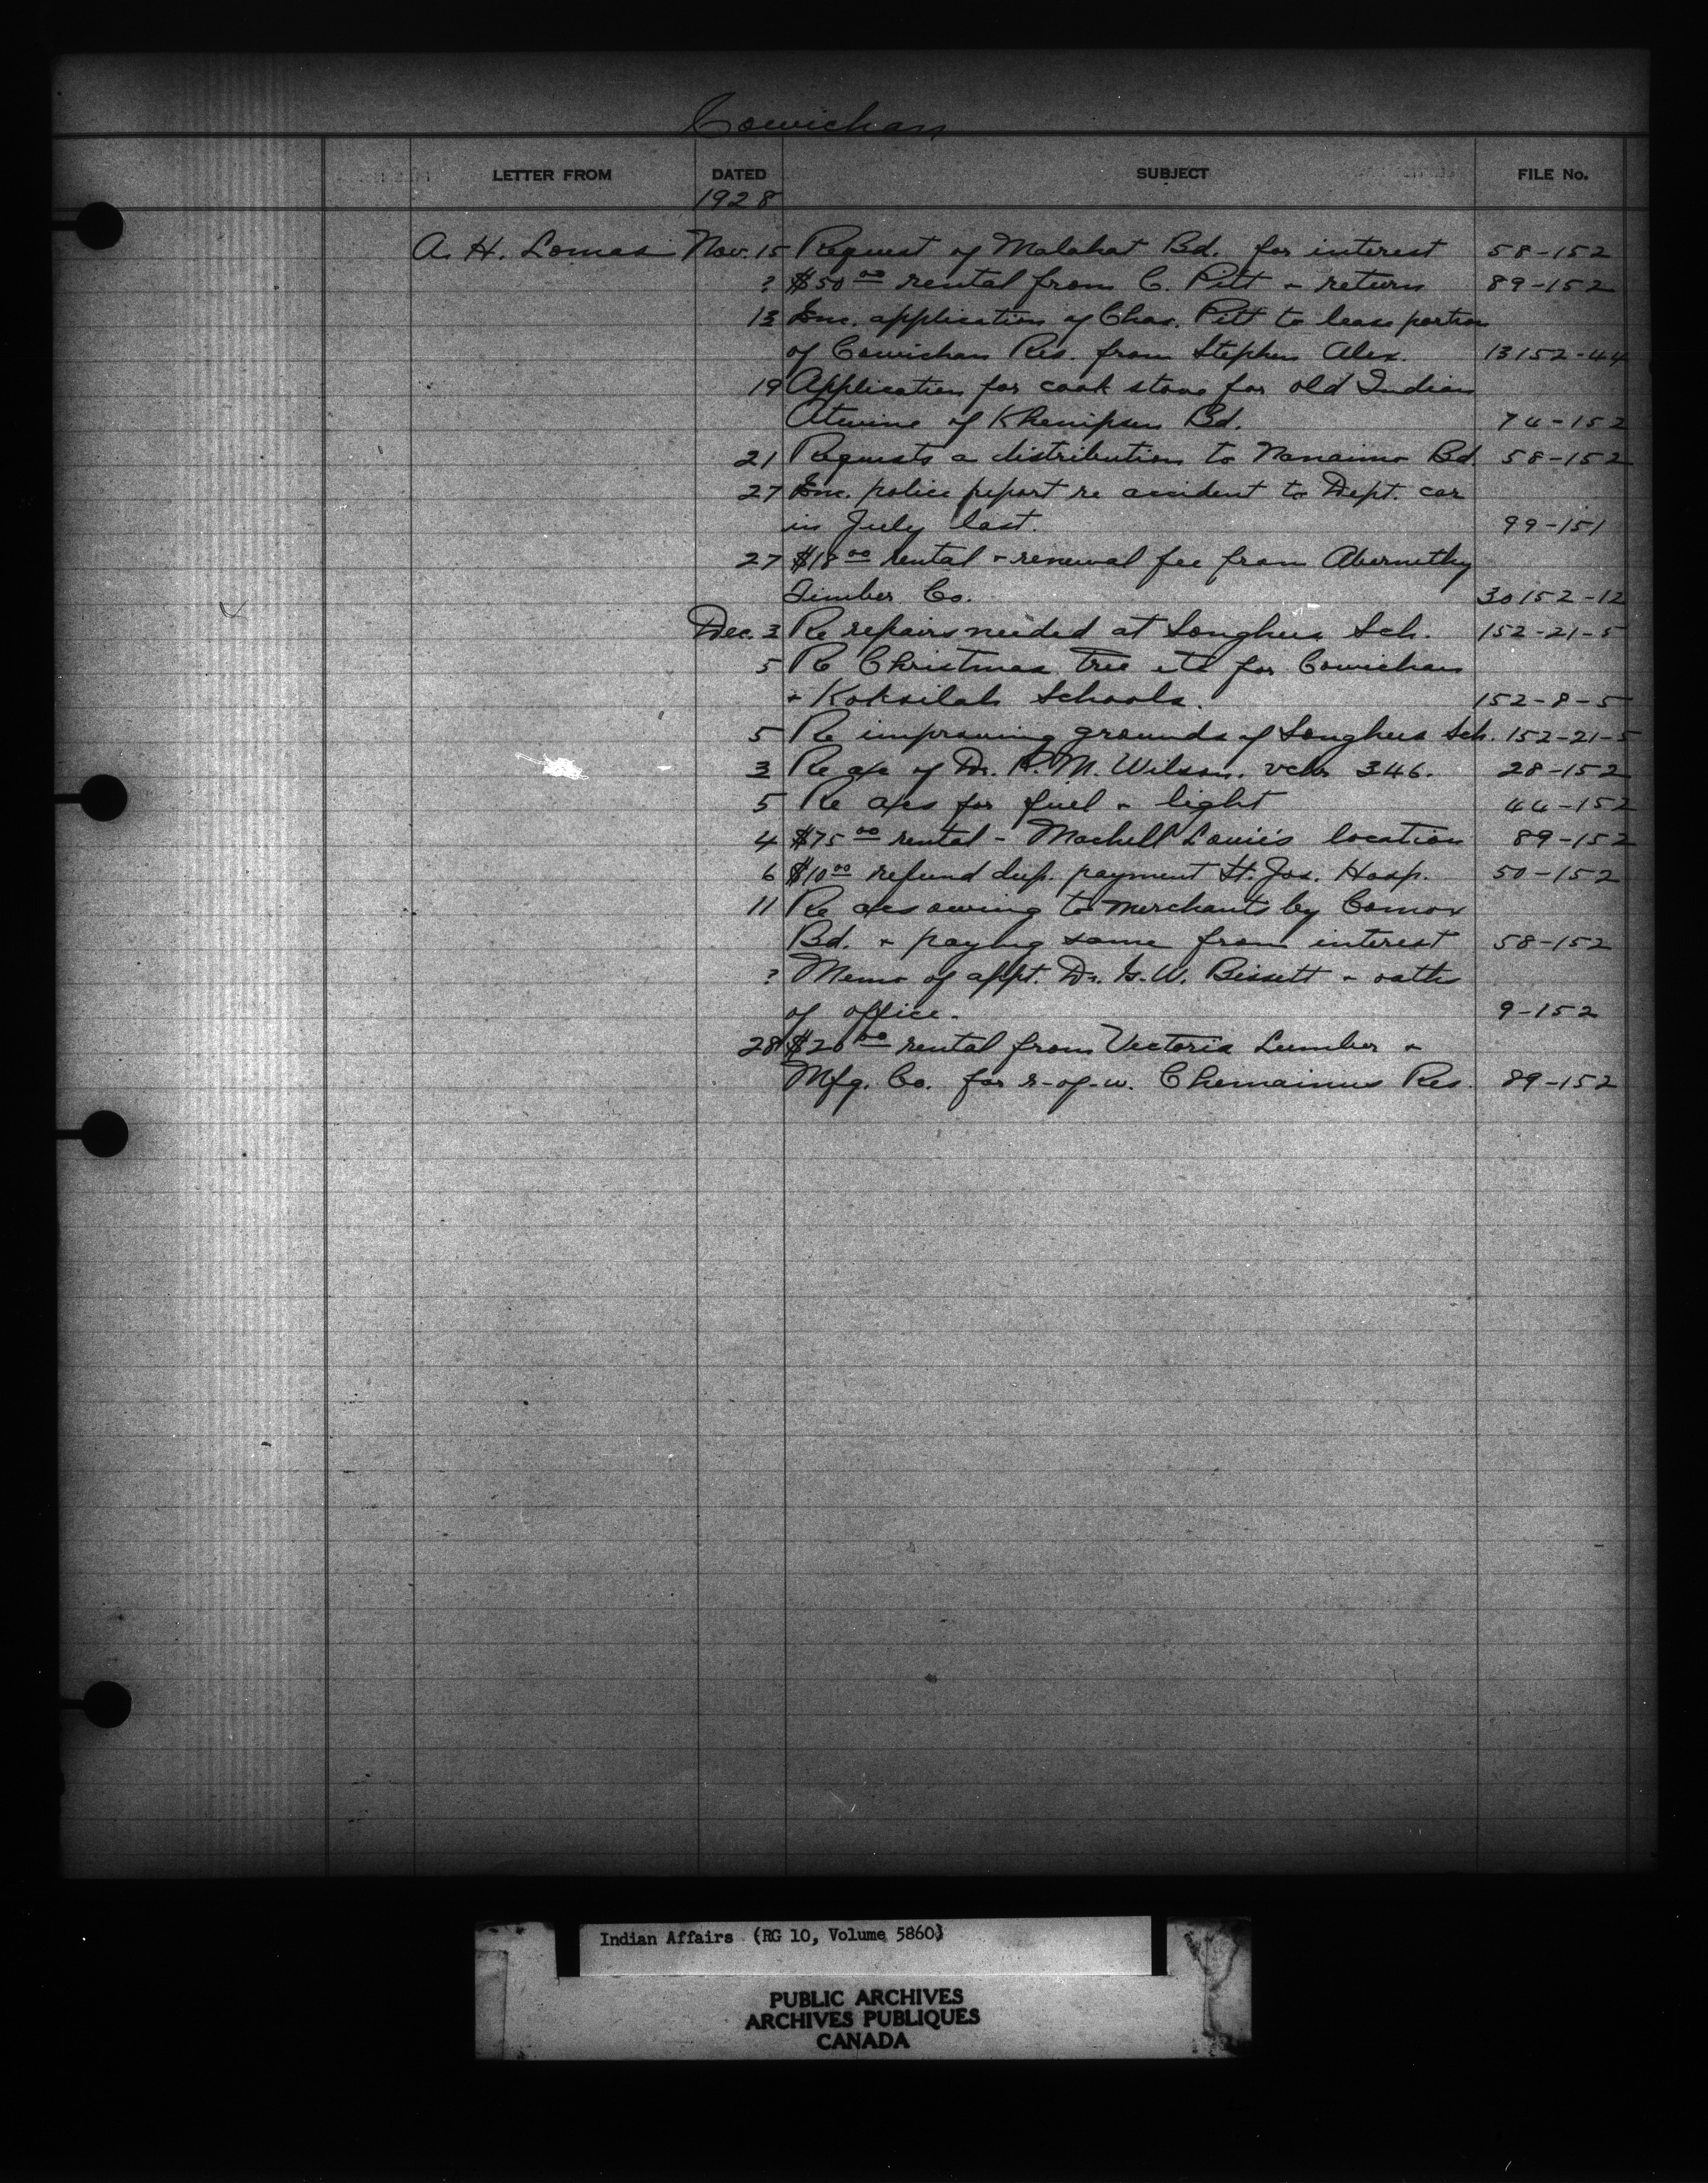 Cowichan
LETTER FROM DATED SUBJECT FILE No.
1928
A. H. Lomas Nov. 15 Request of Malahat Bd. for interest 58-152
? $50 00 rental from C. Pitt & return 89-152
13 Enc. application of Chas. Pitt to lease portion
of Cowichan Res. from Stephen Alex. 13152-44
19 Application for cook stove for old Indian
of Khenipsen Bd. 74-152
21 Requests a distribution to Nanaimo Bd. 58-152
27 Enc. police report re accident to Dept. car
in July last. 99-151
27 $18 00 rental & renewal fee from Abernethy
Timber Co. 30152-12
Dec. 3 Re repairs needed at Songhees Sch. 152-21-5
5 Re Christmas tree etc for Cowichan
& Koksilah Schools. 152-8-5
5 Re improving grounds of Songhees Sch. 152-21-5
3 Re a/c of Dr. R. M. Wilson. vchr 346. 28-152
5 Re a/cs for fuel & light 44-152
4 $75 00 rental - Machell Louie's location 89-152
6 $10 00 refund dup. payment St. Jos. Hosp. 50-152
11 Re a/cs owing to merchants by Comox
Bd. & paying same from interest 58-152
? Memo of appt. Dr. G. W. Bissett & oath
of office. 9-152
28 $20 00 rental from Victoria Lumber &
Mfg. Co. for r-of-w. Chemainus Res. 89-152
Indian Affairs (RG 10, Volume 5860)
PUBLIC ARCHIVES
ARCHIVES PUBLIQUES
CANADA